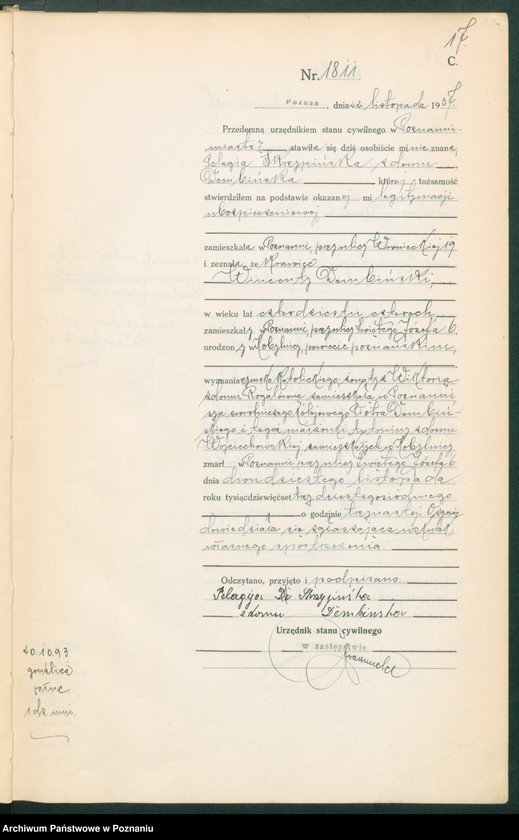 17.
C.
Nr. 1811
Poznań, dnia 22 listopada 1937.
Przedemną urzędnikiem stanu cywilnego w Poznaniu-
mieście stawiła się dziś osobiście mi nie znana,
Pelagia Skrzypińska z domu
Dembińska której tożsamość
stwierdziłem na podstawie okazanej mi legitymacji
ubezpieczeniowej,
zamieszkała w Poznaniu, przy ulicy Wronieckiej 19
i zeznała, że krawiec
Wincenty Dembiński,
w wieku lat czterdziestu czterech
zamieszkały w Poznaniu, przy ulicy Świętego Józefa 6.
urodzony w Kobylnicy, powiecie poznańskim,
wyznania rzymsko katolickiego, żonaty z Wiktorią
z domu zamieszkałą w Poznaniu
syn zwrotniczego kolejowego Piotra Dembiń-
skiego i tegoż małżonki Antoniny z domu
Wojciechowskiej, zamieszkałych w Kobylnicy
zmarł w Poznaniu przy ulicy Świętego Józefa 6
dnia dwudziestego listopada
roku tysiącdziewięćset trzydziestego siódmego
o godzinie trzynastej. O zgonie
dowiedziała się zgłaszająca wskutek
własnego spostrzeżenia.
Odczytano, przyjęto i podpisano.
Pelagja Skrzypińska
z domu Dembińska
Urzędnik stanu cywilnego
w zastępstwie
20.10.93
gruźlica
płuc
Archiwum Państwowe w Poznaniu